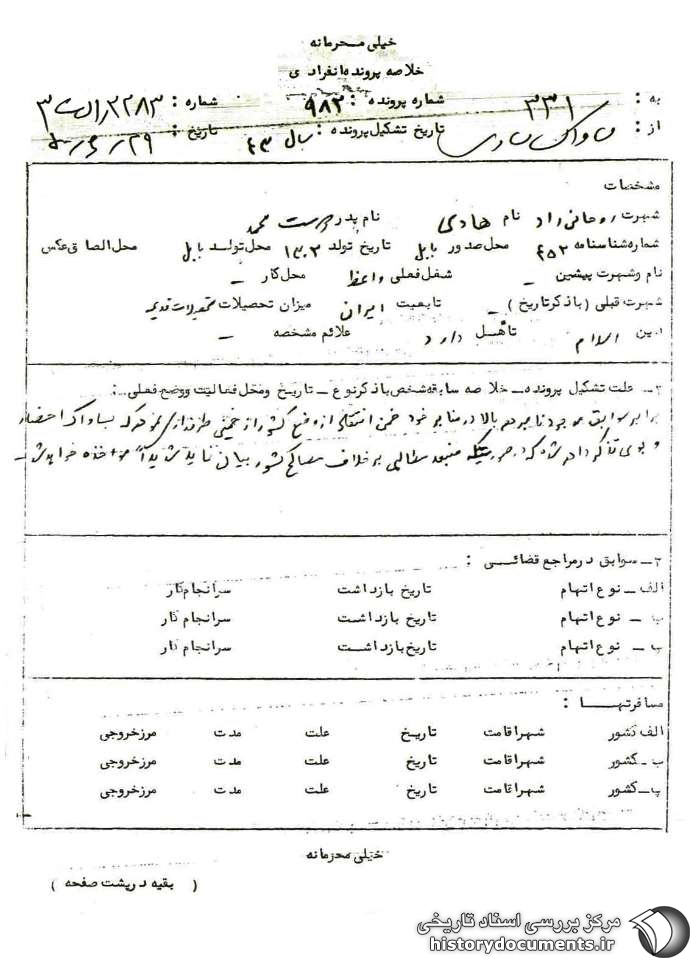 خیلی محرمانه
خلاصه پرونده انفرادی
به : ۳۳۱ شماره پرونده : ۹۸۲ شماره : ۲۲۸۳
از : ساواک ساری تاریخ تشکیل پرونده : سال ۴۳ تاریخ :
مشخصات
شهرت روحانی راد نام هادی نام پدر محمد
شماره شناسنامه ۴۵۲ محل صدور بابل تاریخ تولد ۱۳۰۲ محل تولد بابل محل الصاق عکس
نام وشهرت پیشین – شغل فعلی واعظ محل کار –
شهرت قبلی (باذکرتاریخ) – تابعیت ایران میزان تحصیلات تحصیلات قدیمه
دین اسلام تاهل دارد علائم مشخصه –
۲– علت تشکیل پرونده – خلاصه سابقه شخص باذکرنوع – تاریخ ومحل فعالیت ووضع فعلی :
برابر سوابق موجود نامبرده بالا در منابر خود ضمن انتقاد از وضع کشور از خمینی طرفداری نموده که بساواک احضار
و بوی تذکر داده شده که در صورتیکه مطالبی بر خلاف مصالح کشور بیان نماید شدیداً مواخذه خواهد شد –
۳– سوابق درمراجع قضائی :
الف – نوع اتهام تاریخ بازداشت سرانجام کار
ب – نوع اتهام تاریخ بازداشت سرانجام کار
پ – نوع اتهام تاریخ بازداشت سرانجام کار
مسافرتها :
الف کشور شهراقامت تاریخ علت مدت مرزخروجی
ب – کشور شهراقامت تاریخ علت مدت مرزخروجی
پ – کشور شهراقامت تاریخ علت مدت مرزخروجی
خیلی محرمانه
( بقیه درپشت صفحه )
مرکز بررسی اسناد تاریخی
historydocuments.ir